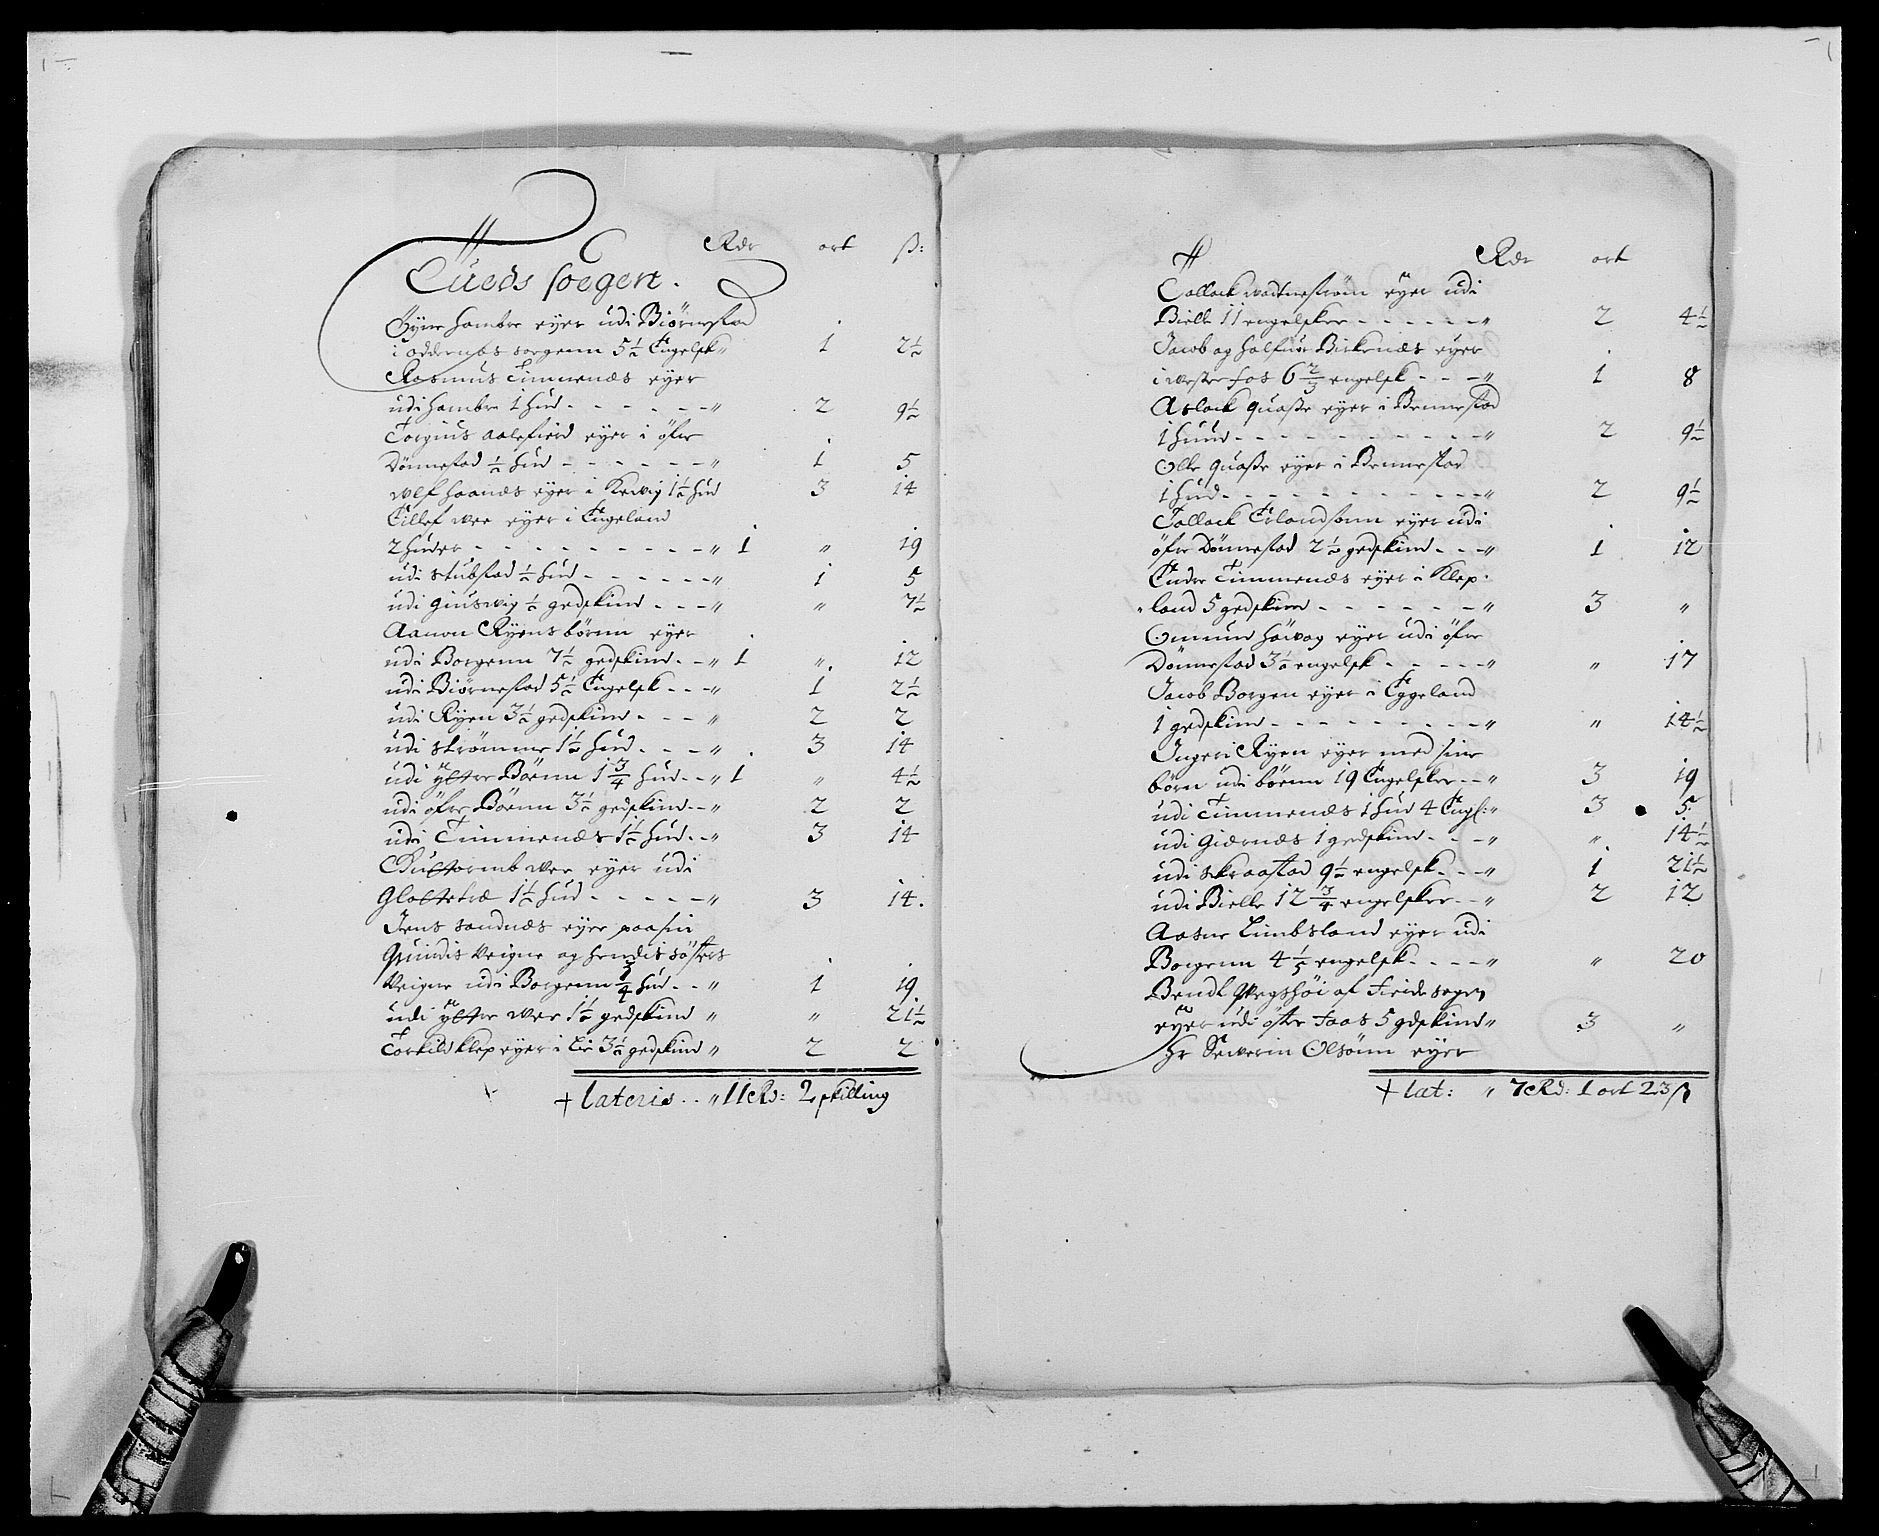 Rdr ort ß:
Tueds soegen.
Gyne hambre eyer udi Biörnestad
i oddernæs soegenn 5½ Engelsk " 1 2½
Rasmus Timmenæs eyer
udi hambre 1 hud - - - - - - " 2 9½
Torgius aalefierd eyer i öfre
Dönnestad ½ hud - - - - - - " 1 5
Wlf haanæs eyer i Kevig 1½ hud 3 14
Tillef wee eyer i Engeland
2 huder - - - - - - - - - " 1 " 19
udi stubstad ½ hud - - - - - - " 1 5
udi giuswig ½ gedskind - - - " " 7½
Aanon Ryens börnn eyer
udi Borgenn 7½ gedskind - - " 1 " 12
udi Biörnestad 5½ Engelsk - - - " 1 2½
udi Ryen 3½ gedskind - - - " 2 2
udi strömme 1½ hud - - - " 3 14
udi ÿttre Böenn 1¾ hud - - " 1 " 4½
udi öfre Böenn 3½ gedskind - - " 2 2
udi Timmenæs 1½ hud - - " 3 14
Guttormb wee eyer udi
Glattetræ 1½ hud - - - - - " 3 14.
Jens sandnæs eyer paa sin
quindis veigne og hendis søsters
veigne udi Borgenn ¾ hud - - " 1 19
udi ÿttre wee 1½ gedskind " " 21½
Torkild klep eyer i Lie 3½ gedskind " 2 2
+ lateris . . " 11 Rd: 2 skilling
Rdr ort
Tollack wadtnestrøm eyer udi
Bielle 11 engelsker - - - - - - " 2 4½
Jacob og halfuor Birkenæs eyer
i westre fos 6⅔ engelsk - - - " 1 8
Aslack quaße eyer i Bennestad
1 huud - - - - - - - - - - " 2 9½
Olle quaße eyer i Bennestad
1 hud - - - - - - - - - - " 2 9½
Tollack Erlandsønn eyer udi
öfre Dönnestad 2½ gedskind - - - " 1 12
Endre Timmenæs eyer i Klep-
land 5 gedskind - - - - - - " 3 "
Omund höwog eyer udi öfre
Dönnestad 3½ engelsk - - - - - " " 17
Jacob Borgen eyer i Eggeland
1 gedskind - - - - - - - - " " 14½
Ingeri Ryen eyer med sine
börn udi böenn 19 Engelsker - - " 3 19
udi Timmenæs 1 hud 4 Engl: " 3 5
udi Giernæs 1 gedskind - - - " " 14½
udi skraastad 9½ engelsk - - - " 1 21½
udi Bielle 12¾ engelsker - - " 2 12
Aasne Limbsland eyer udi
Borgenn 4⅕ engelsk - - - - " " 20
Bendt Wegshöi af Treide sogen
eyer udi öster Foos 5 gdskind " 3 "
Hr Severin Olsönn eyer
+ lat: " 7 Rd: 1 ort 23 ß